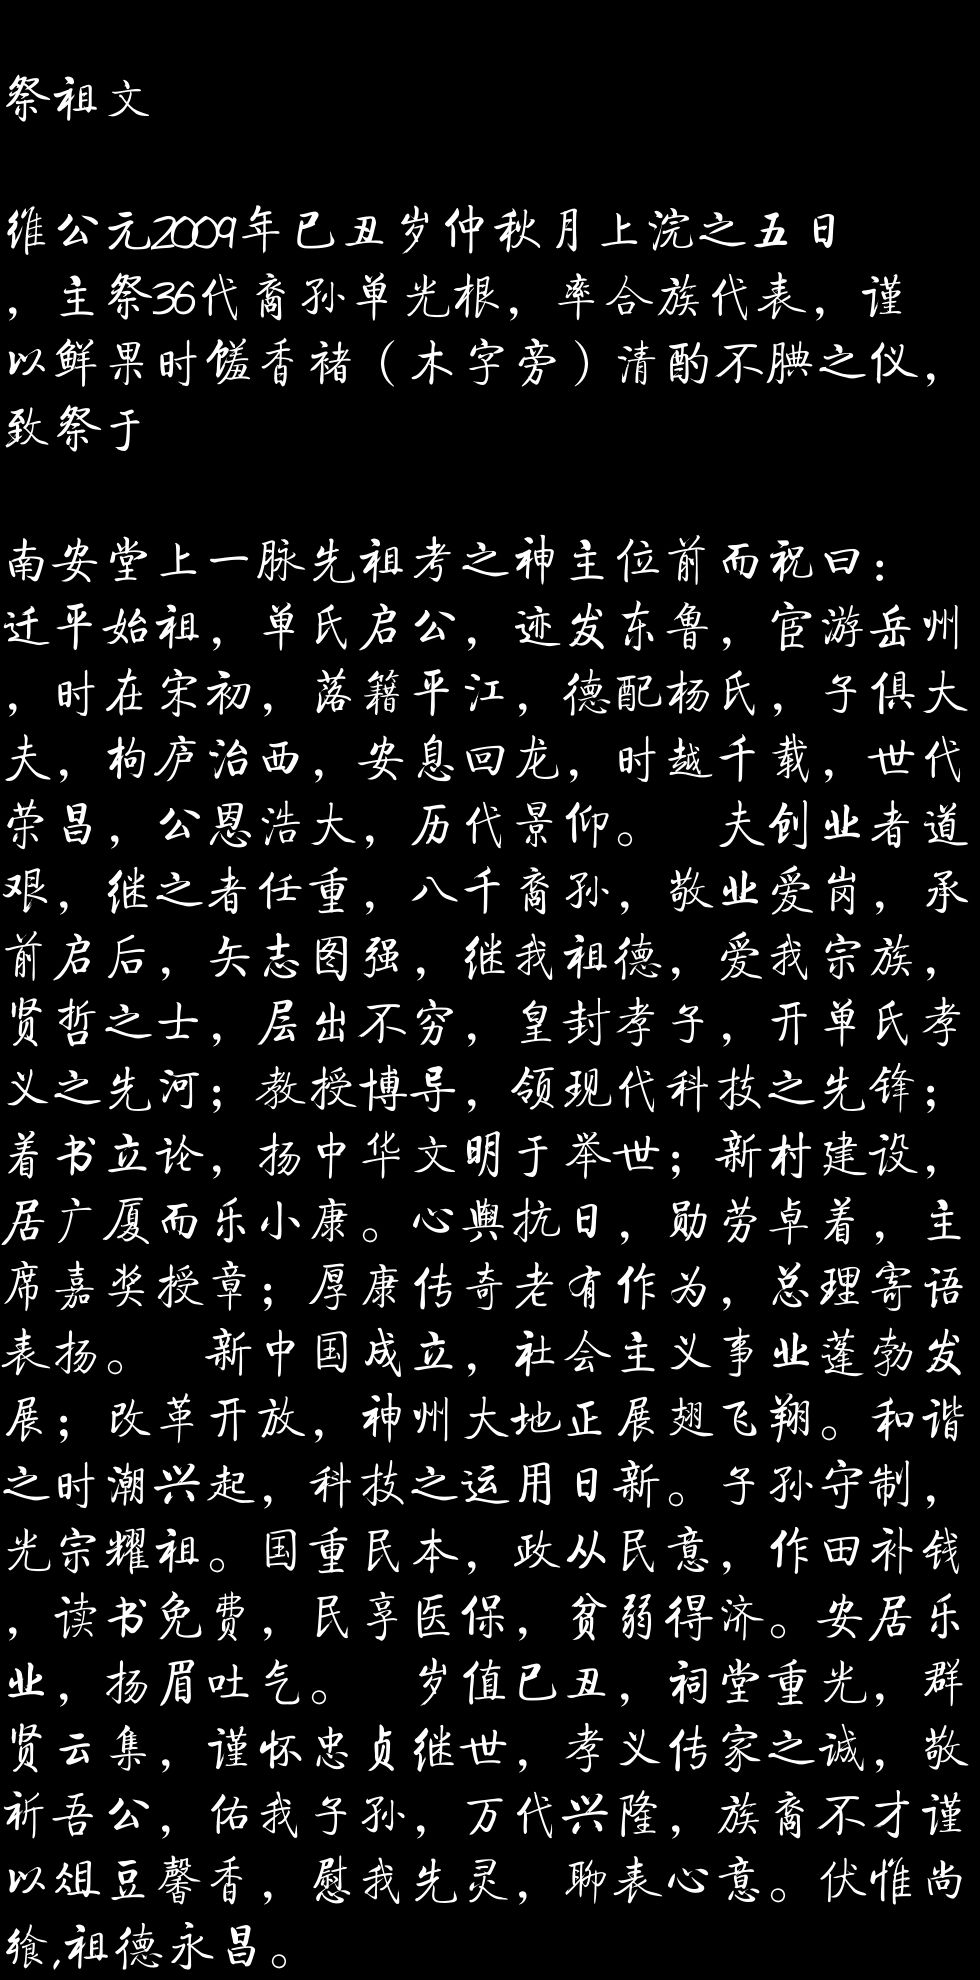 祭祖文
维公元2009年已丑岁仲秋月上浣之五日
，主祭36代裔孙单光根，率合族代表，谨
以鲜果时馐香褚（木字旁）清酌不腆之仪，
致祭于
南安堂上一脉先祖考之神主位前而祝曰：
迁平始祖，单氏启公，迹发东鲁，宦游岳州
，时在宋初，落籍平江，德配杨氏，子俱大
夫，枸庐治西，安息回龙，时越千载，世代
荣昌，公恩浩大，历代景仰。　夫创业者道
艰，继之者任重，八千裔孙，敬业爱岗，承
前启后，矢志图强，继我祖德，爱我宗族，
贤哲之士，层出不穷，皇封孝子，开单氏孝
义之先河；教授博导，领现代科技之先锋；
着书立论，扬中华文明于举世；新村建设，
居广厦而乐小康。心舆抗日，勋劳卓着，主
席嘉奖授章；厚康传奇老有作为，总理寄语
表扬。　新中国成立，社会主义事业蓬勃发
展；改革开放，神州大地正展翅飞翔。和谐
之时潮兴起，科技之运用日新。子孙守制，
光宗耀祖。国重民本，政从民意，作田补钱
，读书免费，民享医保，贫弱得济。安居乐
业，扬眉吐气。　岁值已丑，祠堂重光，群
贤云集，谨怀忠贞继世，孝义传家之诚，敬
祈吾公，佑我子孙，万代兴隆，族裔不才谨
以俎豆馨香，慰我先灵，聊表心意。伏惟尚
飨,祖德永昌。